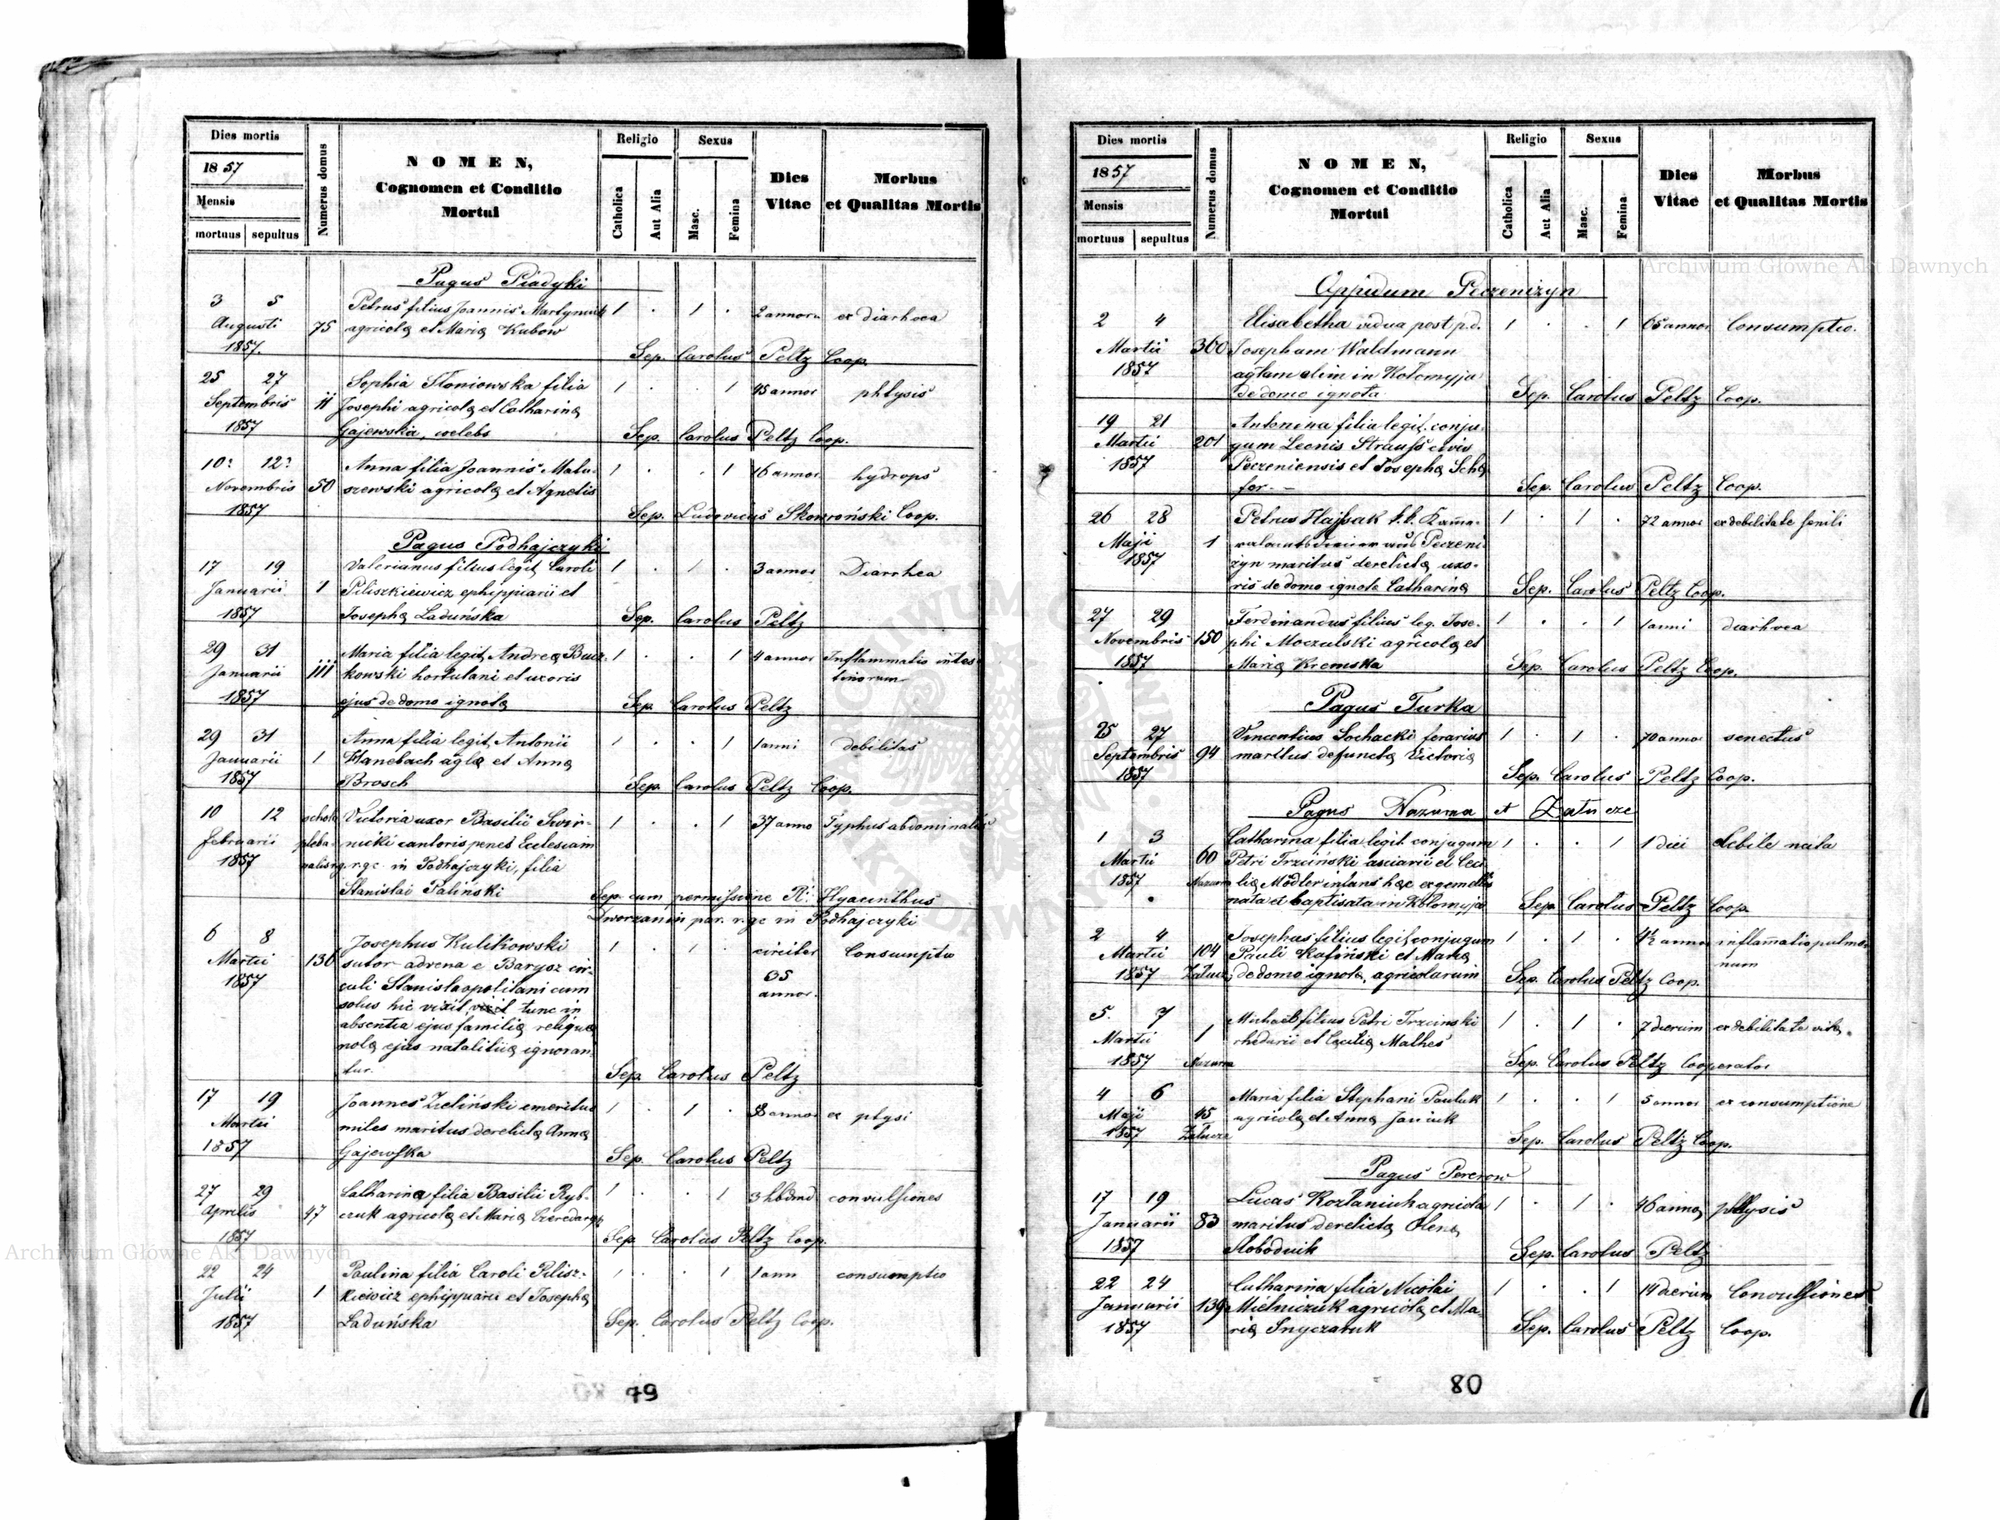 Dies mortis
1857
Mensis
mortuus sepultus
Numerus domus
NOMEN,
Cognomen et Conditio
Mortui
Religio
Catholica
Aut Alia
Sexus
Masc.
Femina
Dies
Vitae
Morbus
et Qualitas Mortis
Pagus Piadyki
3 5 Petrus filius Joannis Martyniuk 1 . 1 . 2 annor. ex diarhoea
Augusti 75 agricolę et Marię Kubow
1857. Sep. Carolus Peltz Coop.
25 27 Sophia Słoniowska filia 1 . . 1 45 annor phtysis
Septembris 11 Josephi agricolę et Catharinę
1857 Gajewska, coelebs Sep. Carolus Peltz Coop.
10 12 Anna filia Joannis Matu- 1 . . 1 16 annor hydrops
Novembris 50 szewski agricolę et Agnetis
1857 Sep. Ludovicus Skowroński Coop.
Pagus Podhajczyki
17 19 Valerianus filius legit. Caroli 1 . 1 . 3 annor Diarrhea
Januarii 1 Piliszkiewicz ephippiarii et
1857 Josephę Laduńska Sep. Carolus Peltz
29 31 Maria filia legit. Andreę Bucz- 1 . . 1 4 annor Inflammatio intes-
Januarii 111 kowski hortulani et uxoris tinorum
1857 ejus de domo ignotę Sep. Carolus Peltz
29 31 Anna filia legit. Antonii 1 . . 1 1 anni debilitas
Januarii 1 Hanebach agłę et Annę
1857 Brosch Sep. Carolus Peltz Coop.
10 12 schola Victoria uxor Basilii Swir- 1 . . 1 37 anno Typhus abdominalis
Februarii pleba- nicki cantoris penes Ecclesiam
1857 nalis r.g.c. in Podhajczyki, filia
Stanislai Paliński Sep. cum permissione R. Hyacinthus
Dworzanin par. r.gc in Podhajczyki
6 8 Josephus Kulikowski 1 . 1 . circiter Consumptio
Martii 136 sutor advena e Barysz cir- 35
1857 culi Stanislaopolitani cum annor.
solus hic vixit vixit tunc in
absentia ejus familię reliquę
notę ejus natalitiię ignoran-
tur. Sep. Carolus Peltz
17 19 Joannes Zieliński emeritus 1 . 1 . 58 annor ex ptysi
Martii miles maritus derelictę Annę
1857 Gajewska Sep. Carolus Peltz
27 29 Catharina filia Basilii Ryb- 1 . . 1 3 hbdmd convulsiones
Aprilis 47 czuk agricolę et Marię
1857 Sep. Carolus Peltz Coop.
22 24 Paulina filia Caroli Pilisz- 1 . . 1 1 ann consumptio
Julii 1 kiewicz ephippiarii et Josephę
1857 Laduńska Sep. Carolus Peltz Coop.
79
Dies mortis
1857
Mensis
mortuus sepultus
Numerus domus
NOMEN,
Cognomen et Conditio
Mortui
Religio
Catholica
Aut Alia
Sexus
Masc.
Femina
Dies
Vitae
Morbus
et Qualitas Mortis
Oppidum Peczeniżyn
2 4 Elisabetha vidua post p.d. 1 . . 1 65 annor Consumptio.
Martii 360 Josephum Waldmann
1857 agłam olim in Kołomyja
de domo ignota Sep. Carolus Peltz Coop.
19 21 Antonina filia legit. conju-
Martii 201 gum Leonis Strauss civis
1857 Peczeniensis et Josephę Schę-
fer. — Sep. Carolus Peltz Coop.
26 28 Petrus Hajsak k.k. Kamme- 1 . 1 . 72 annor ex debilitate senili
Maji 1 Peczeni-
1857 żyn maritus derelictę uxo-
ris de domo ignotę Catharinę Sep. Carolus Peltz Coop.
27 29 Ferdinandus filius leg. Jose- 1 . . 1 1 anni diarhoea
Novembris 150 phi Moczulski agricolę et
1857 Marię Kremska Sep. Carolus Peltz Coop.
Pagus Turka
25 27 Vincentius Srehacki ferarius 1 . 1 . 70 annor senectus
Septembris 94 maritus defunctę Victorię
1857 Sep. Carolus Peltz Coop.
Pagus Nazurna et Załucze
1 3 Catharina filia legit conjugum 1 . . 1 1 diei debile nata
Martii 60 Petri Trzciński asciarii et Ceci-
1857 Nazurna lię Mödler infans hęc ex gemellis
nata et baptisata in Kołomyja Sep. Carolus Peltz Coop.
2 4 Josephus filius legit. conjugum 1 . 1 . 4½ annor inflamatio pulmo-
Martii 104 Pauli Kafinski et Marię num
1857 Załucz. de domo ignotę, agricolarum Sep. Carolus Peltz Coop.
5. 7 Michael filius Petri Trzcinski 1 . 1 . 7 dierum ex debilitate vitę.
Martii 1 rhedarii et Cecilię Mathes
1857 Nazurna Sep. Carolus Peltz Cooperator
4 6 Maria filia Stephani Pauluk 1 . . 1 5 annor ex consumptione
Maji 45 agricolę et Annę Janiuk
1857 Załucze Sep. Carolus Peltz Coop.
Pagus Pererow
17 19 Lucas Kozłaniuk agricola 1 . 1 . 46 annor phtysis
Januarii 83 maritus derelictę Olenę
1857 Slobodnik Sep. Carolus Peltz
22 24 Catharina filia Nicolai 1 . . 1 14 dierum Convulsiones
Januarii 139 Mielniczuk agricolę et Ma-
1857 rię Snyczaruk Sep. Carolus Peltz Coop.
80
Archiwum Główne Akt Dawnych
Archiwum Główne Akt Dawnych